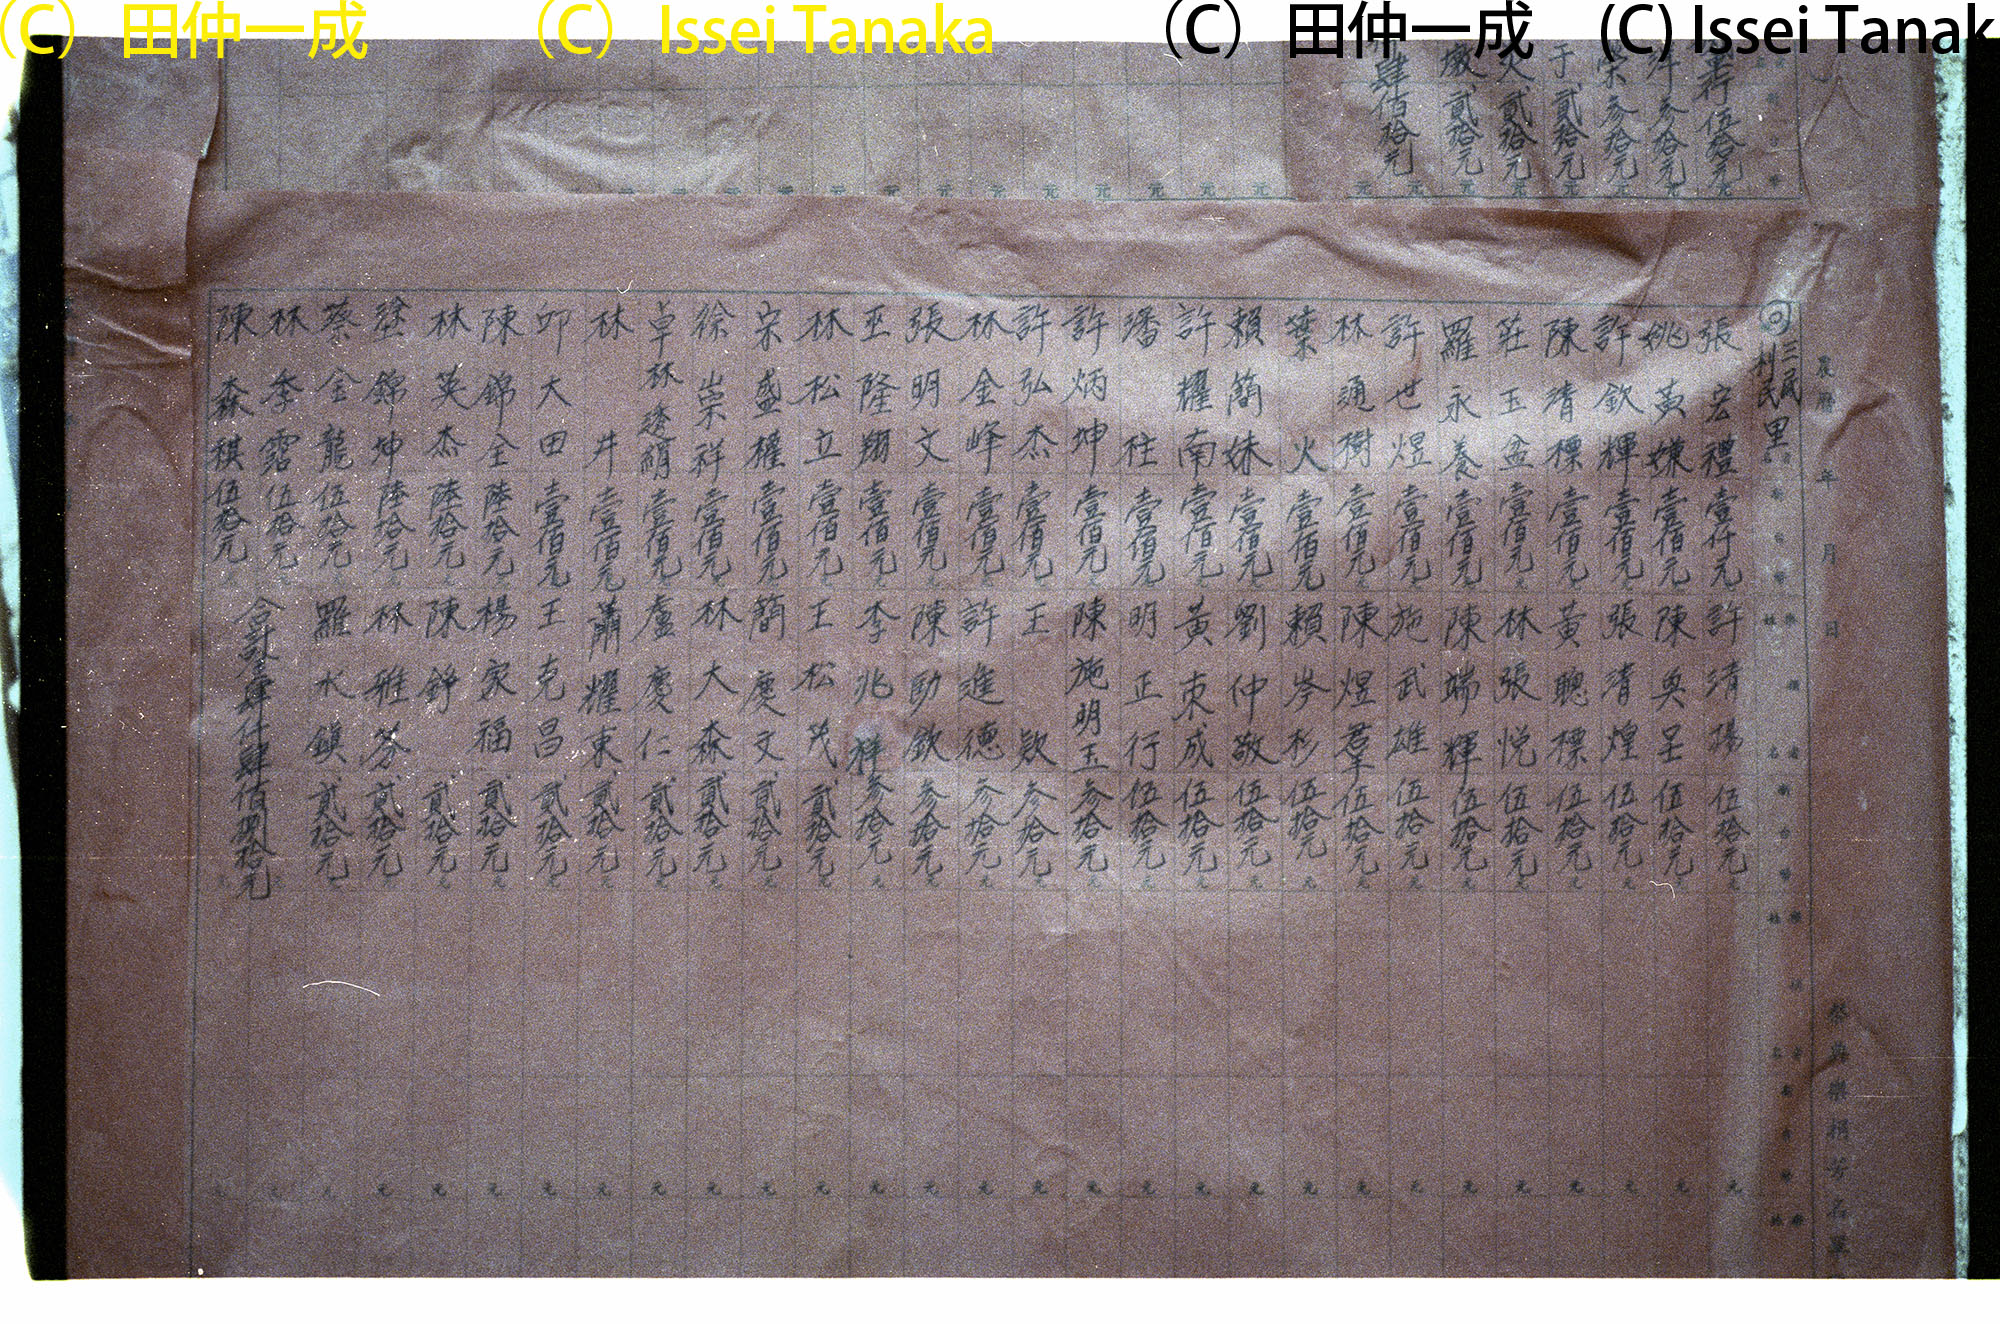 (C) 田仲一成 (C) Issei Tanaka (C) 田仲一成 (C) Issei Tanak
伍拾元
參拾元
榮參拾元
于貳拾元
貳拾元
墩貳拾元
肆佰拾元
農曆 年 月 日
三民
利民
里
張宏禮壹仟元
姚黃嫌壹佰元
許欽輝壹佰元
陳清標壹佰元
莊玉盆壹佰元
羅永養壹佰元
許世煜壹佰元
林通樹壹佰元
葉火壹佰元
賴簡妹壹佰元
許耀南壹佰元
潘柱壹佰元
許炳坤壹佰元
許弘杰壹佰元
林金峰壹佰元
張明文壹佰元
巫隆翔壹佰元
林松立壹佰元
宋盛權壹佰元
徐崇祥壹佰元
卓林透絹壹佰元
林井壹佰元
邱大田壹佰元
陳錦全陸拾元
林英杰陸拾元
錦坤陸拾元
蔡金龍伍拾元
林季露伍拾元
陳森祺伍拾元
許清陽伍拾元
陳吳呈伍拾元
張清煌伍拾元
黃聰標伍拾元
林張悅伍拾元
陳端輝伍拾元
施武雄伍拾元
陳煜羣伍拾元
賴岑杉伍拾元
劉仲敬伍拾元
黃束成伍拾元
明正行伍拾元
陳施明玉參拾元
王欵參拾元
許進德參拾元
陳助欽參拾元
李兆祥參拾元
王松茂貳拾元
簡慶文貳拾元
林大森貳拾元
盧慶仁貳拾元
蕭耀東貳拾元
王克昌貳拾元
楊家福貳拾元
陳錚貳拾元
林雅芬貳拾元
羅水鎮貳拾元
合計金肆仟肆佰捌拾元